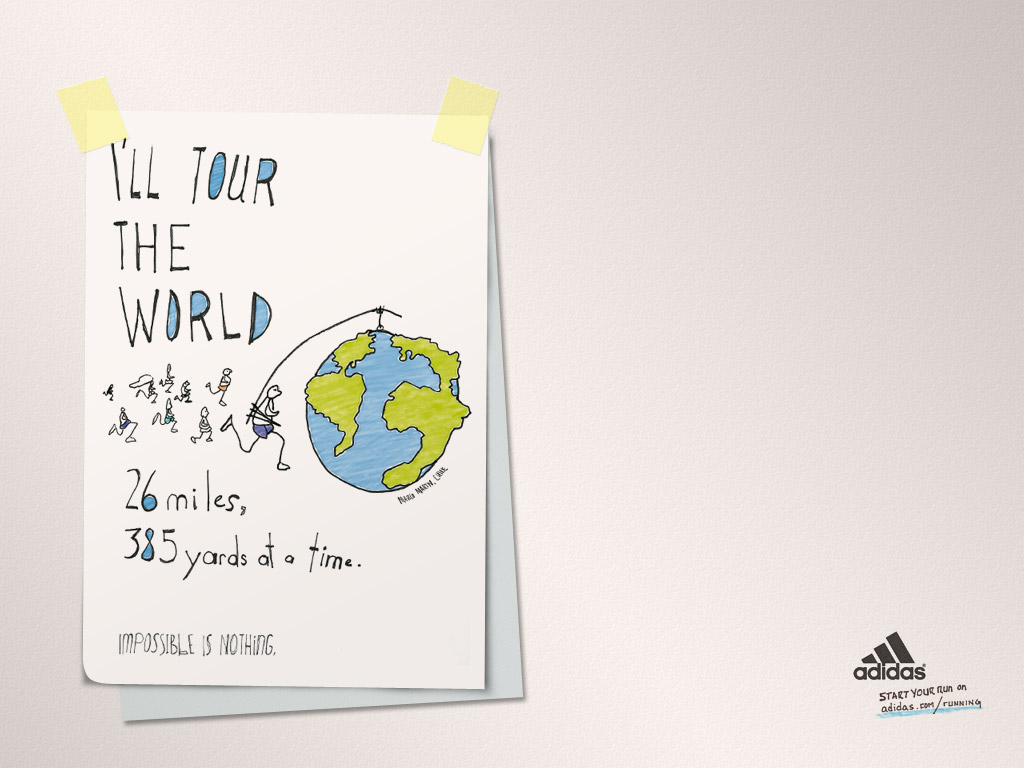 I'LL TOUR
THE
WORLD
26 miles,
385 yards at a time.
IMPOSSIBLE IS NOTHING.
adidas®
START YOUR RUN on
adidas.com/running